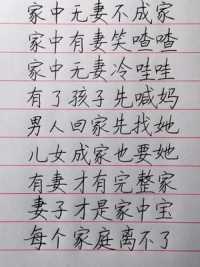 家中无妻不成家
家中有妻笑喳喳
家中无妻冷哇哇
有了孩子先喊妈
男人回家先找她
儿女成家也要她
有妻才有完整家
妻子才是家中宝
每个家庭离不了